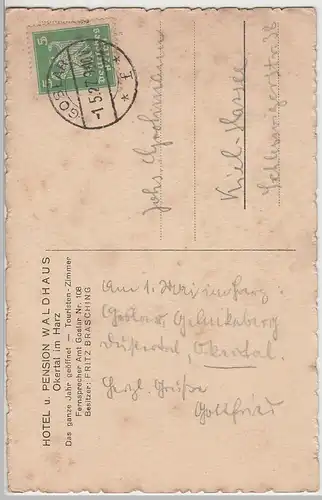 HOTEL u. PENSION WALDHAUS
Okertal im Harz
Das ganze Jahr geöffnet — Touristen-Zimmer
Fernsprecher Amt Goslar Nr. 108
Besitzer: FRITZ BRASCHING
Am 1. Mai im Harz.
Goslar,
Okertal.
Herzl. Grüße
Gottfried
5
Deutsches Reich
GOSLAR
-1.5.27.
* f *
Johs.
Kiel-Hassee
Schleswigerstraße